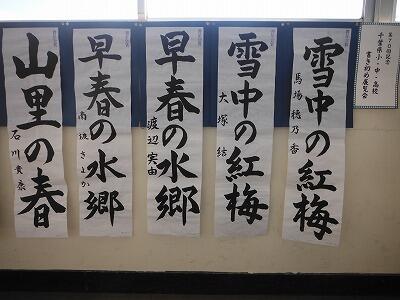 第70回記念
千葉県小・中・高校
書き初め展覧会
雪中の紅梅
馬場穂乃香
雪中の紅梅
大塚結
早春の水郷
渡辺実由
早春の水郷
山里の春
石川貴泰